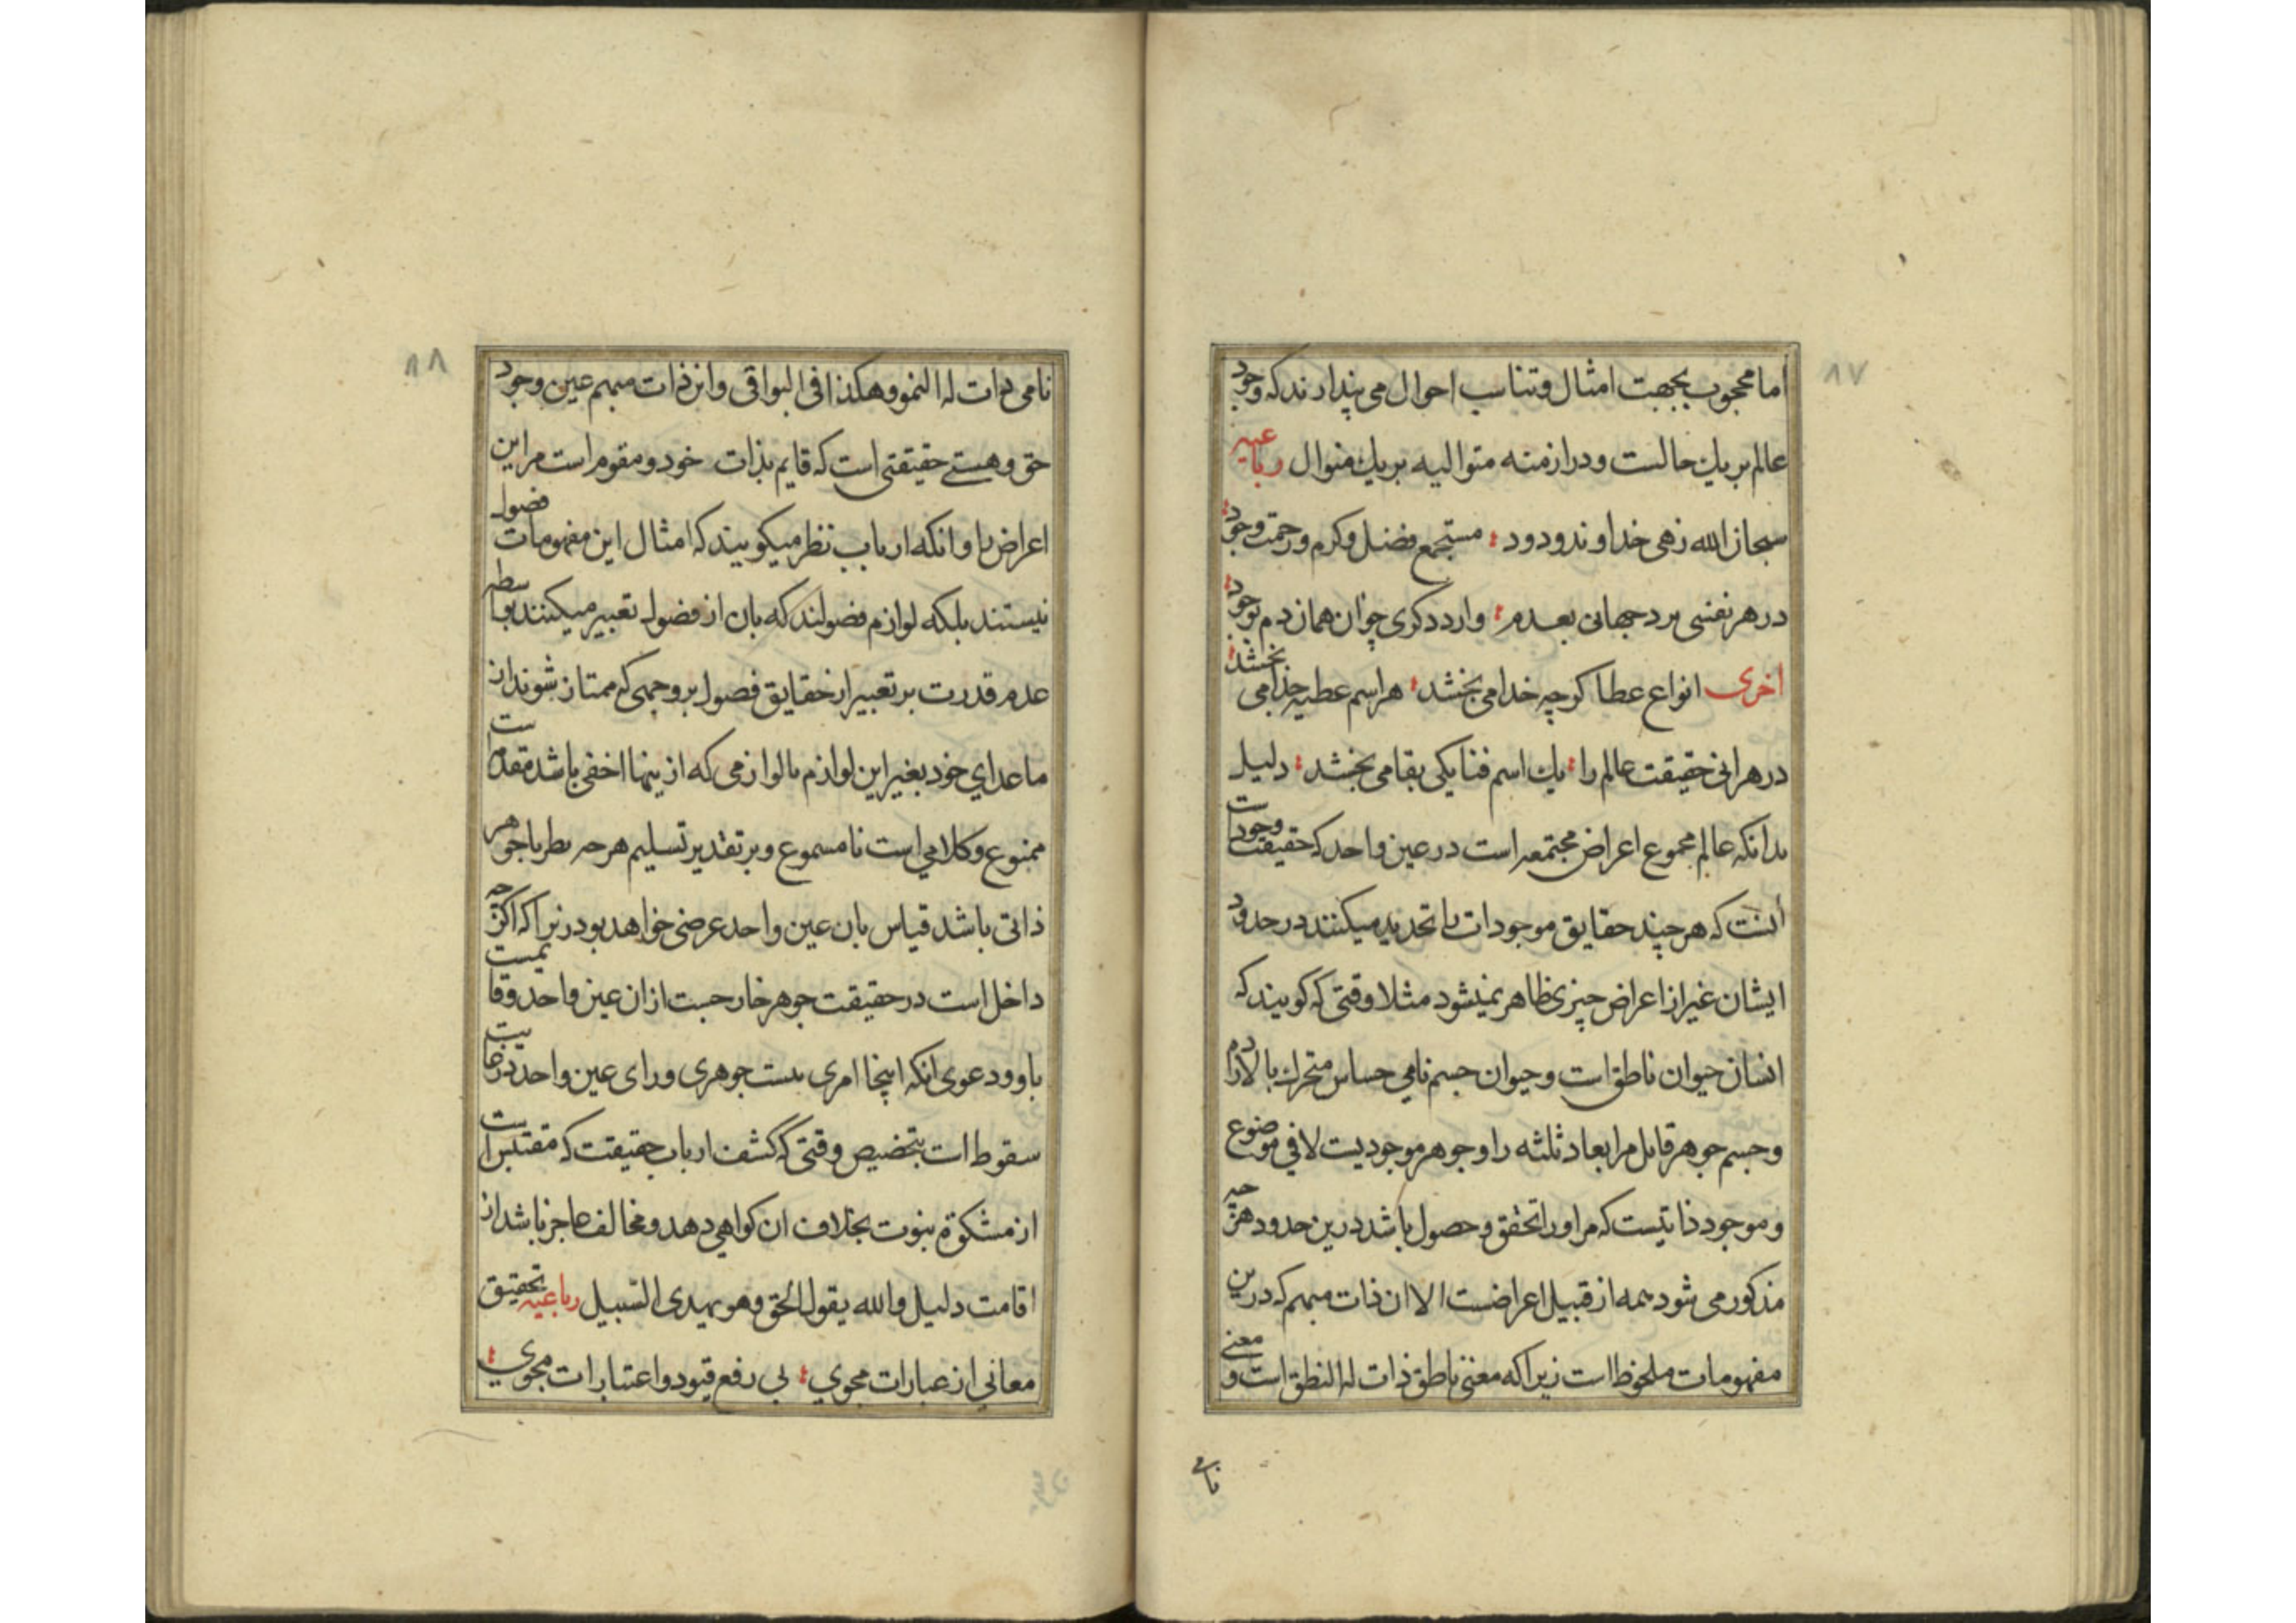 ٨٧
اما محجوب بجهت امثال و تناسب احوال می پندارند که وجود
عالم بر یك حالست و در ازمنه متوالیه بر یك منوال رباعیه
سبحان الله زهی خداوند ودود مستجمع فضل و کرم و رحمت وجود
در هر نفسی برد جهانی بعدم وارد دکری چو آن همان دم بوجود
اخری انواع عطا کرچه خدا می بخشد هر اسم عطیه جدا می بخشد
در هر انی حقیقت عالم را یك اسم فنا یکی بقا می بخشد دلیل
بدانکه عالم مجموع اعراض مجتمعه است در عین واحد که حقیقت وجودست
انست که هر چند حقایق موجودات را تحدید میکنند در حدود
ایشان غیر از اعراض چیزی ظاهر نمیشود مثلا وقتی که کویند که
انسان حیوان ناطق است و حیوان جسم نامی حساس متحرك بالاراده
و جسم جوهر قابل مر ابعاد ثلثه را و جوهر موجودیت لا فی موضوع
و موجود ذاتیست که مر او را تحقق و حصول باشد درین حدود هرچه
مذکور می شود همه از قبیل اعراضست الا ان ذات مبهم که درین
مفهومات ملحوظ است زیرا که معنی ناطق ذات له النطق است و معنی
نامی
٨٨
نامی ذات له النمو و هکذا فی البواقی و این ذات مبهم عین وجود
حق و هستی حقیقتی است که قایم بذات خود و مقوم است مر این
اعراض را و انکه ارباب نظر میکویند که امثال این مفهومات فصول
نیستند بلکه لوازم فصولند که بان از فصول تعبیر میکنند بواسطه
عدم قدرت بر تعبیر از حقایق فصول بر وجهی که ممتاز شوند از
ما عدای خود بغیر این لوازم یا لوازمی که ازینها اخفی باشد مقدمه است
ممنوع و کلامی است نامسموع و بر تقدیر تسلیم هرچه نظر با جوهر
ذاتی باشد قیاس بان عین واحد عرضی خواهد بود زیرا که اکرچه
داخل است در حقیقت جوهر خارجست ازان عین واحد و قایمست
باو و دعوی انکه اینجا امری هست جوهری ورای عین واحد در غایت
سقوط است بتخصیص وقتی که کشف ارباب حقیقت که مقتبس است
از مشکوة نبوت بخلاف ان کواهی دهد و مخالف عاجز باشد از
اقامت دلیل و الله یقول الحق و هو یهدی السبیل رباعیه تحقیق
معانی از عبارات مجوی بی رفع قیود و اعتبارات مجوی